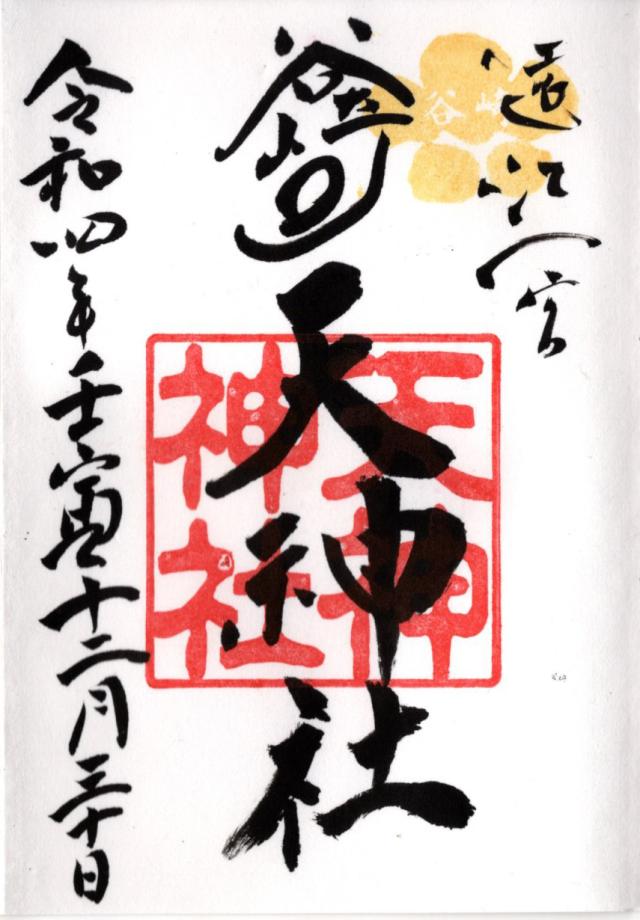 遠江一宮
谷崎
谷崎天神社
天神
神社
令和四年壬寅十二月三十日